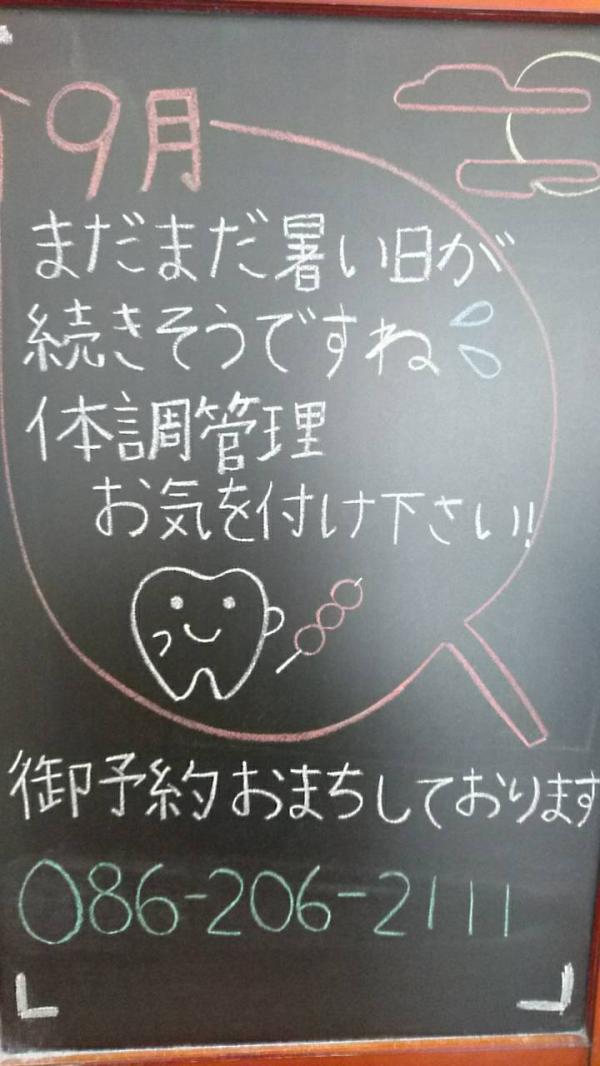 9月
まだまだ暑い日が
続きそうですね
体調管理
お気を付け下さい!
御予約おまちしております
086-206-2111